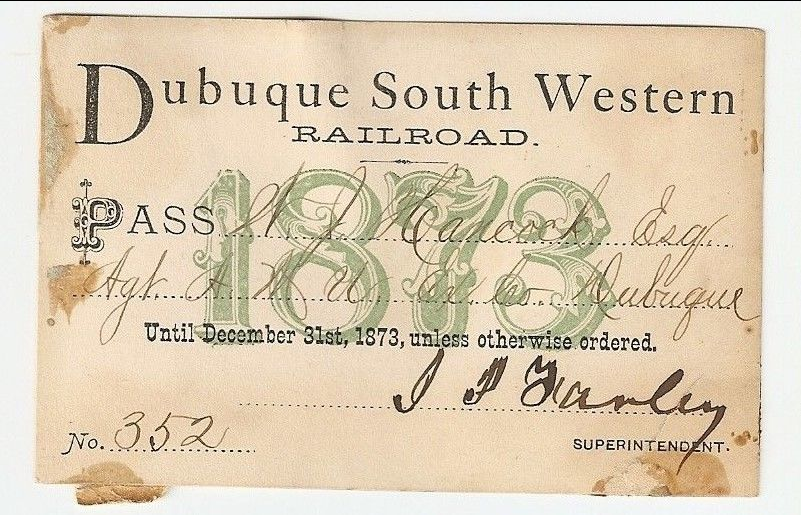 Dubuque South Western
RAILROAD.
1873
PASS W. J. Hancock Esq.
Agt. A. M. U. Ex. Co. Dubuque
Until December 31st, 1873, unless otherwise ordered.
J P Farley
No. 352 SUPERINTENDENT.